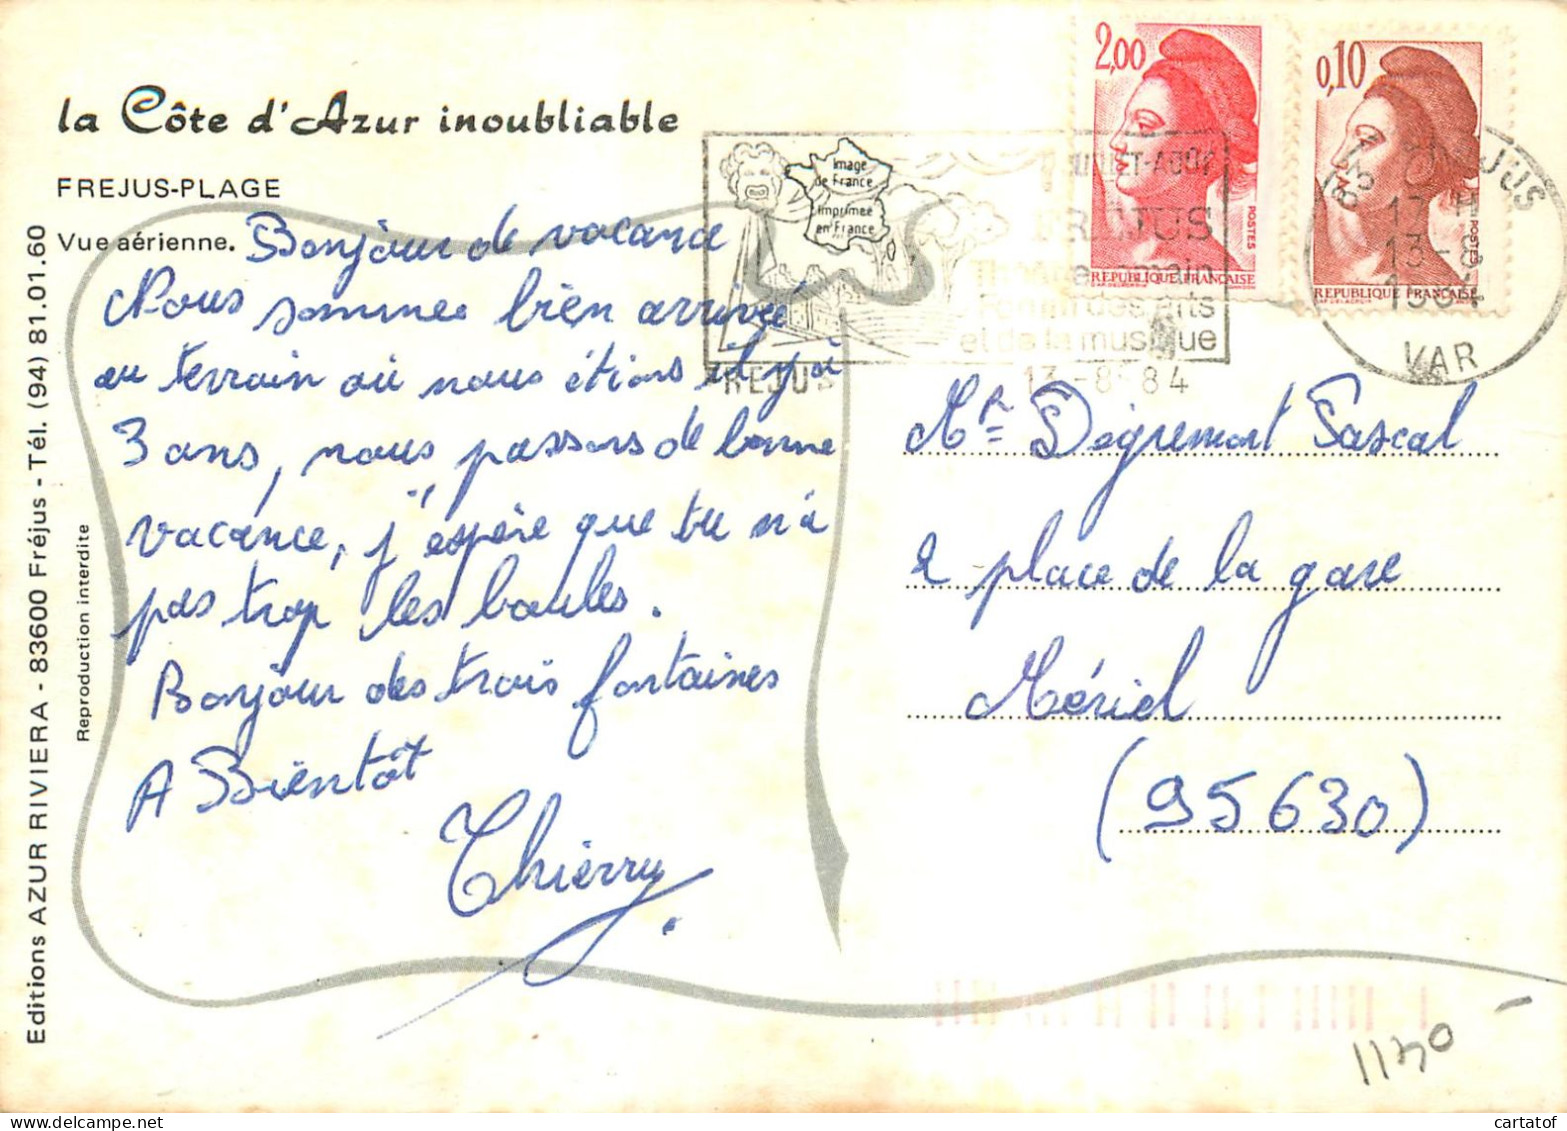 la Côte d'Azur inoubliable
FREJUS-PLAGE
Vue aérienne.
Bonjour de vacance
Nous sommes bien arrivée
au terrain où nous étions il y a
3 ans, nous passons de bonne
vacance, j'espère que tu n'a
pas trop les boules.
Bonjour des trois fontaines
A Bientôt
Thierry
Editions AZUR RIVIERA - 83600 Fréjus - Tél. (94) 81.01.60
Reproduction interdite
Image
de France
imprimée
en France
JUILLET-AOUT
FREJUS
Théâtre romain
Forum des arts
et de la musique
FREJUS
13-8-84
2,00
POSTES
REPUBLIQUE FRANÇAISE
0,10
POSTES
REPUBLIQUE FRANÇAISE
83 FREJUS
13-8
1984
VAR
Mr Dégremont Pascal
2 place de la gare
Mériel
(95630)
1140
cartatof